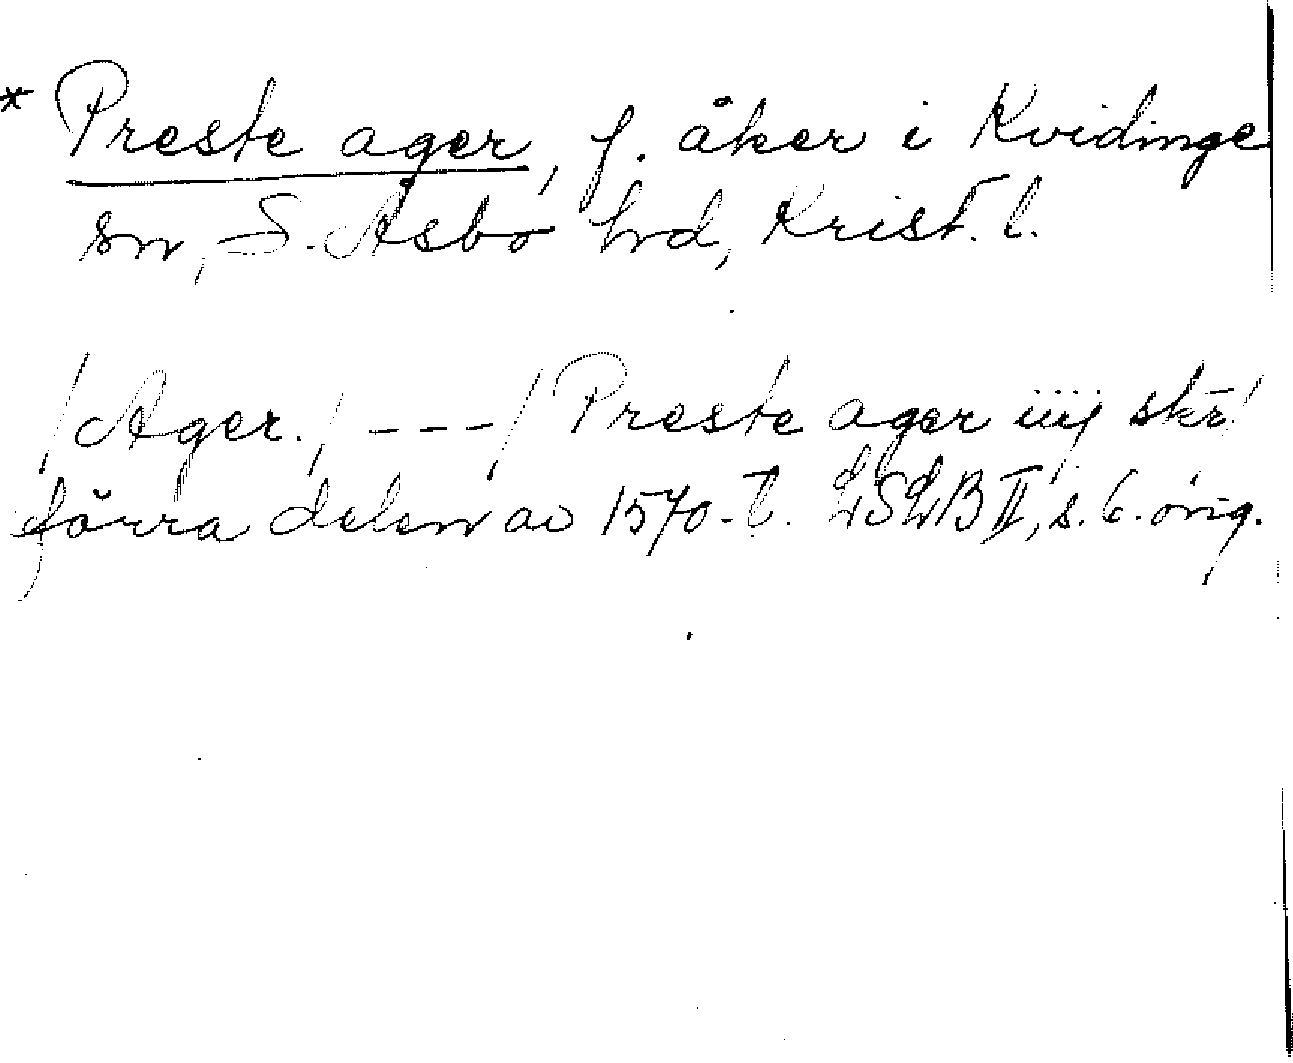 * Preste ager, f. åker i Kvidinge
sn, S. Åsbo hrd, Krist. l.
/Ager./ --- / Preste ager iiij skr̄
förra delen av 1570-t. LSLB II, s. 6. orig.